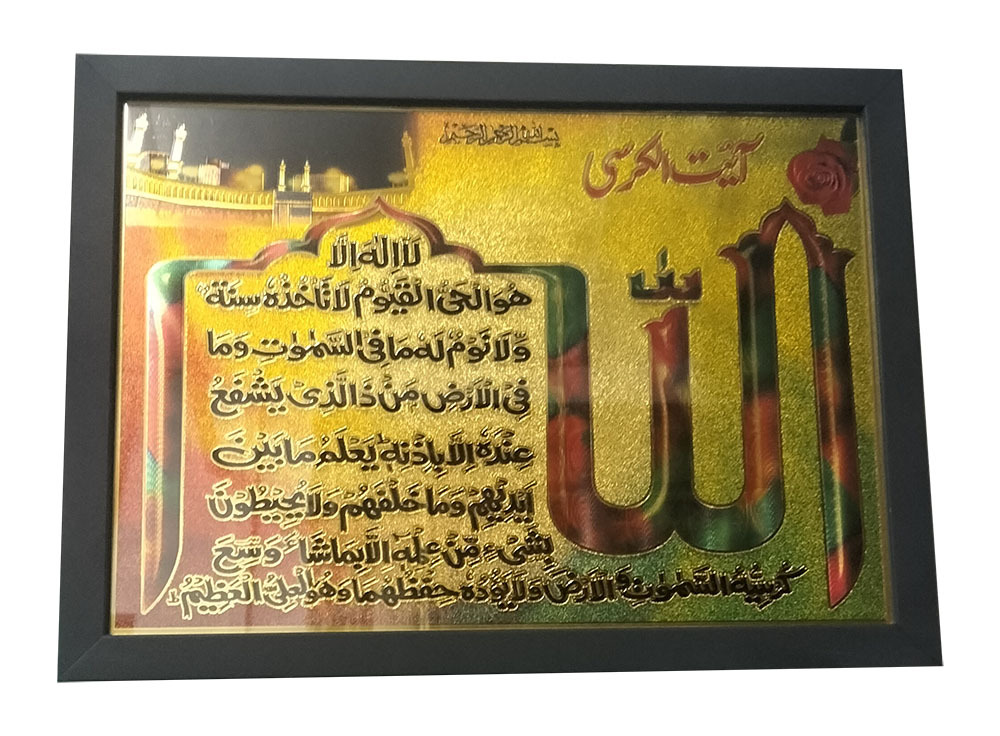 بسم الله الرحمن الرحيم
آیت الکرسی
الله
لَا اِلٰهَ اِلَّا
هُوَ الْحَیُّ الْقَیُّوْمُ لَا تَاْخُذُهٗ سِنَةٌ
وَّلَا نَوْمٌ لَهٗ مَا فِی السَّمٰوٰتِ وَمَا
فِی الْاَرْضِ مَنْ ذَا الَّذِیْ یَشْفَعُ
عِنْدَهٗ اِلَّا بِاِذْنِهٖ یَعْلَمُ مَا بَیْنَ
اَیْدِیْهِمْ وَمَا خَلْفَهُمْ وَلَا یُحِیْطُوْنَ
بِشَیْءٍ مِّنْ عِلْمِهٖ اِلَّا بِمَا شَآءَ وَسِعَ
كُرْسِیُّهُ السَّمٰوٰتِ وَ الْاَرْضَ وَلَا یَؤُدُهٗ حِفْظُهُمَا وَهُوَ الْعَلِیُّ الْعَظِیْمُ